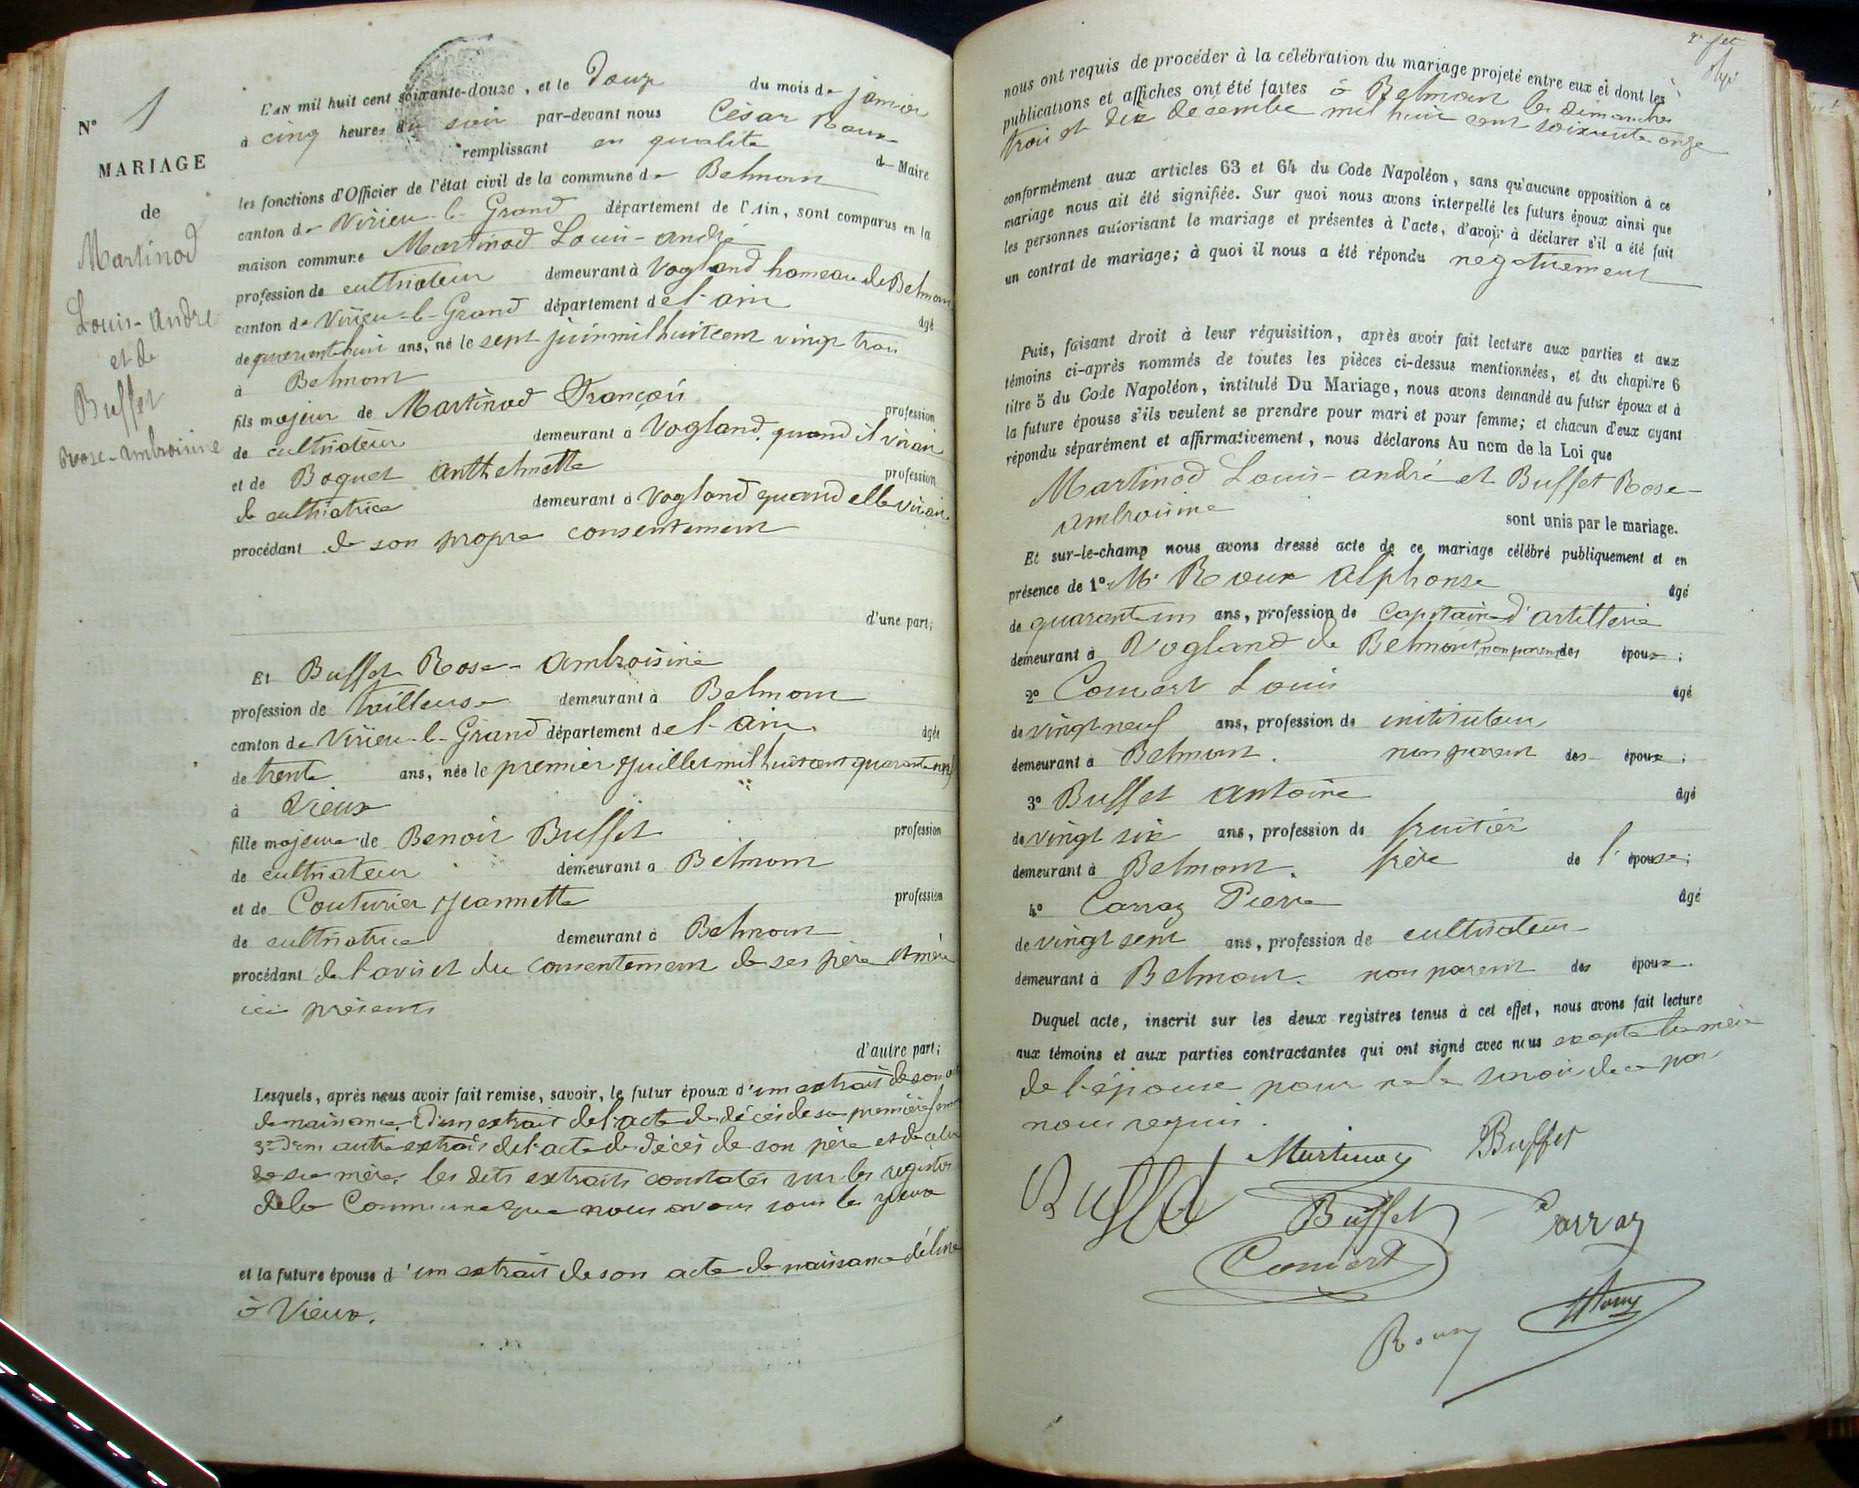 N° 1
MARIAGE
de
Martinod
Louis-André
et de
Buffet
Rose-Ambroisine
L'AN mil huit cent soixante-douze, et le douze du mois de janvier
à cinq heures du soir par-devant nous César Roux
remplissant en qualité de Maire
les fonctions d'Officier de l'état civil de la commune de Belmont
canton de Virieu-le-Grand département de l'Ain, sont comparus en la
maison commune Martinod Louis-André
profession de cultivateur demeurant à Vogland hameau de Belmont
canton de Virieu-le-Grand département de l'ain âgé
de quarante huit ans, né le sept juin mil huit cent vingt trois
à Belmont
fils majeur de Martinod François profession
de cultivateur demeurant à Vogland, quand il vivait
et de Boquet Anthelmette profession
de cultivatrice demeurant à Vogland quand elle vivait
procédant de son propre consentement
d'une part;
Et Buffet Rose-Ambroisine
profession de tailleuse demeurant à Belmont
canton de Virieu-le-Grand département de l'Ain âgée
de trente ans, née le premier juillet mil huit cent quarante un
à Vieux
fille majeure de Benoit Buffet profession
de cultivateur demeurant à Belmont
et de Couturier Jeannette profession
de cultivatrice demeurant à Belmont
procédant de l'avis et du consentement de ses père et mère
ici présents
d'autre part;
Lesquels, après nous avoir fait remise, savoir, le futur époux d'un extrait de son acte
de naissance, d'un extrait de l'acte de décès de sa première femme
3° d'un autre extrait de l'acte de décès de son père et de celui
de sa mère, les dits extraits constatés sur les registres
de la Commune que nous avons sous les yeux
et la future épouse d'un extrait de son acte de naissance délivré
à Vieux.
nous ont requis de procéder à la célébration du mariage projeté entre eux et dont les
publications et affiches ont été faites à Belmont les dimanches
trois et dix décembre mil huit cent soixante onze
conformément aux articles 63 et 64 du Code Napoléon, sans qu'aucune opposition à ce
mariage nous ait été signifiée. Sur quoi nous avons interpellé les futurs époux ainsi que
les personnes autorisant le mariage et présentes à l'acte, d'avoir à déclarer s'il a été fait
un contrat de mariage; à quoi il nous a été répondu négativement
Puis, faisant droit à leur réquisition, après avoir fait lecture aux parties et aux
témoins ci-après nommés de toutes les pièces ci-dessus mentionnées, et du chapitre 6
titre 5 du Code Napoléon, intitulé Du Mariage, nous avons demandé au futur époux et à
la future épouse s'ils veulent se prendre pour mari et pour femme; et chacun d'eux ayant
répondu séparément et affirmativement, nous déclarons Au nom de la Loi que
Martinod Louis-André et Buffet Rose-
Ambroisine
sont unis par le mariage.
Et sur-le-champ nous avons dressé acte de ce mariage célébré publiquement et en
présence de 1° Mr Roux Alphonse âgé
de quarante un ans, profession de Capitaine d'artillerie
demeurant à Vogland de Belmont, non parent des époux;
2° Convert Louis âgé
de vingt neuf ans, profession de instituteur
demeurant à Belmont. non parent des époux;
3° Buffet Antoine âgé
de vingt six ans, profession de fruitier
demeurant à Belmont. frère de l'épouse;
4° Carraz Pierre âgé
de vingt sept ans, profession de cultivateur
demeurant à Belmont. non parent des époux.
Duquel acte, inscrit sur les deux registres tenus à cet effet, nous avons fait lecture
aux témoins et aux parties contractantes qui ont signé avec nous excepté la mère
de l'épouse pour ne le savoir de ce par
nous requis.
Martinod Buffet
Buffet Buffet Carraz
Convert
Roux